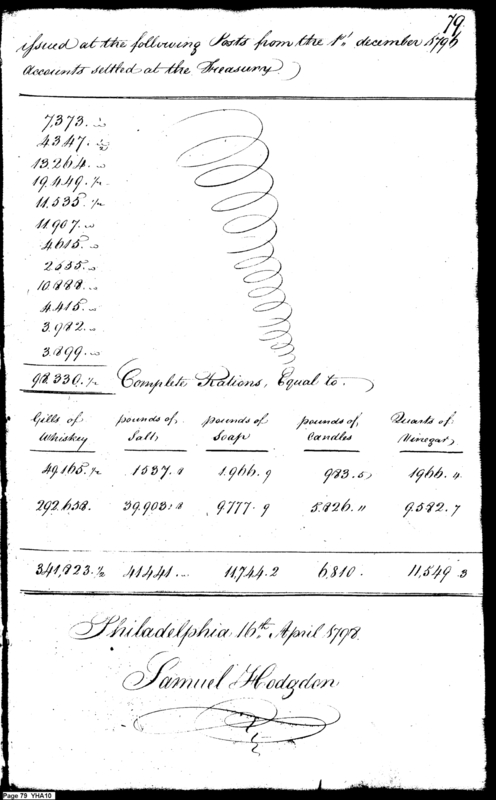 79
issued at the following Posts from the 1st december 1796
Accounts settled at the Treasury)
7,373. "
4347. 1/2
13.264. "
19.449. 1/2
11,535. 1/2
11.907. "
4615. "
2555. "
10.888. "
4.415. "
3.982. "
3.899. "
98.330. 1/2 Complete Rations, Equal to.
Gills of Whiskey pounds of Salt pounds of Soap pounds of Candles Quarts of Vinegar
49.165. 1/2 1537. 8 1.966. 9 983. 5 1966. 4
292.658. 39,903: 8 9777. 9 5.826. 11 9.582. 7
341,823. 1/2 41441 11,744. 2 6,810. 11,549 3
Philadelphia 16th April 1798
Samuel Hodgdon
Page 79 YHA10